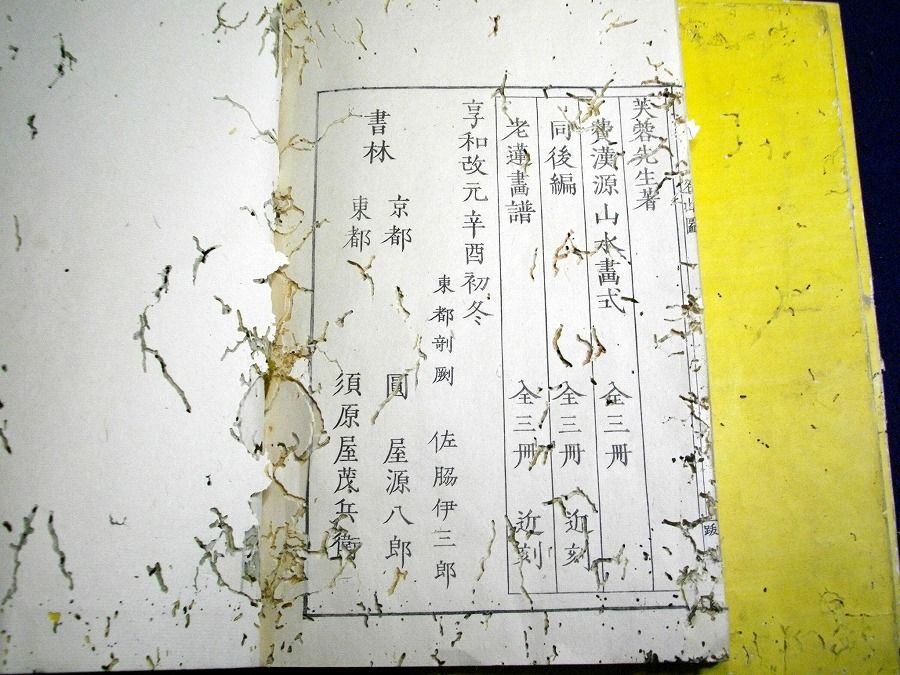 芙蓉先生著
費漢源山水畫式 全三冊
同後編 全三冊 近刻
老蓮畫譜 全三冊 近刻
享和改元辛酉初冬
東都剞劂 佐脇伊三郎
書林
京都 圓屋源八郎
東都 須原屋茂兵衛
跋